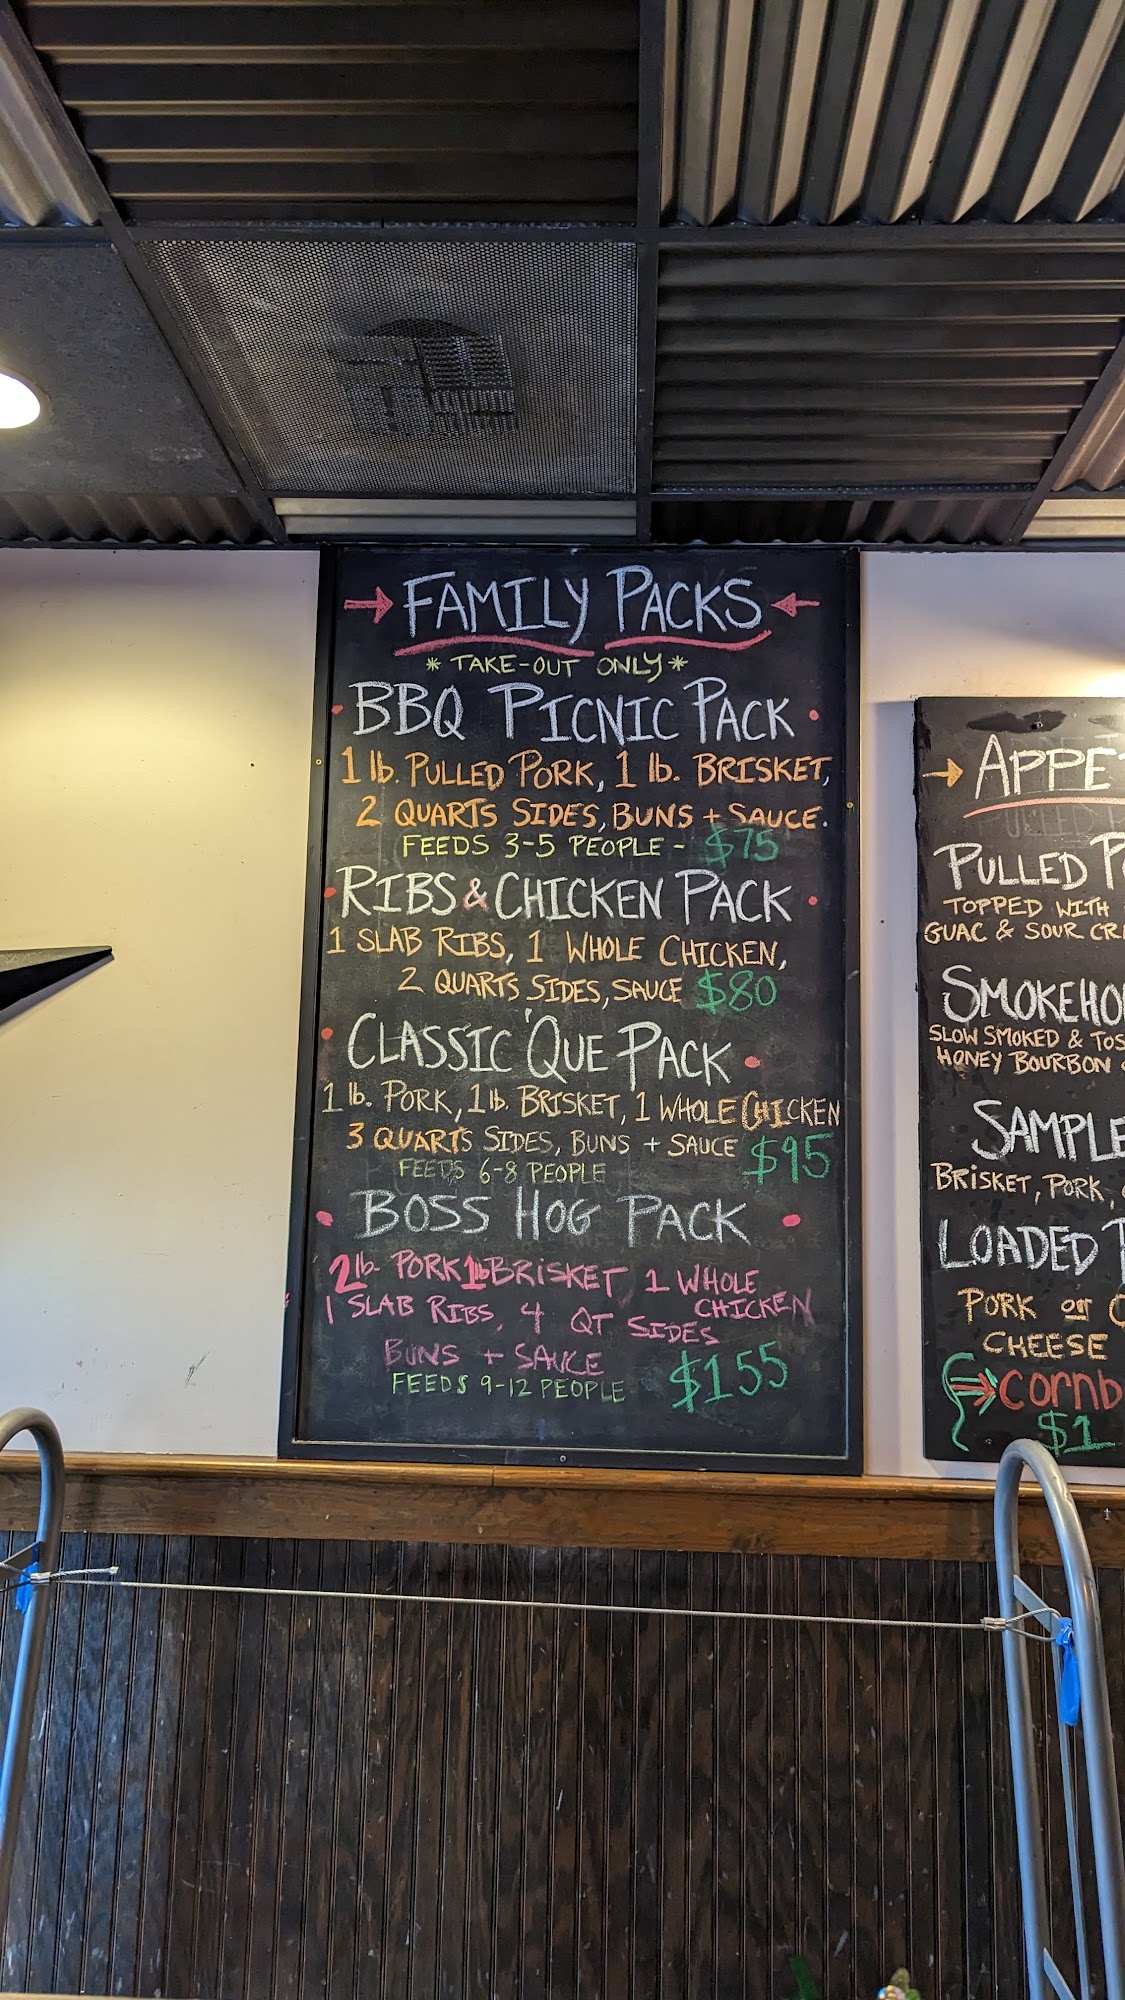 FAMILY PACKS
* TAKE-OUT ONLY *
BBQ PICNIC PACK
1 lb. PULLED PORK, 1 lb. BRISKET,
2 QUARTS SIDES, BUNS + SAUCE.
FEEDS 3-5 PEOPLE - $75
RIBS & CHICKEN PACK
1 SLAB RIBS, 1 WHOLE CHICKEN,
2 QUARTS SIDES, SAUCE $80
CLASSIC 'QUE PACK
1 lb. PORK, 1 lb. BRISKET, 1 WHOLE CHICKEN
3 QUARTS SIDES, BUNS + SAUCE $95
FEEDS 6-8 PEOPLE
BOSS HOG PACK
2 lb. PORK 1 lb BRISKET 1 WHOLE CHICKEN
1 SLAB RIBS, 4 QT SIDES
BUNS + SAUCE
FEEDS 9-12 PEOPLE $155
PULLED
TOPPED WITH
GUAC & SOUR
SLOW SMOKED &
HONEY BOURBON
BRISKET, PORK,
LOADED
PORK or
CHEESE
$1